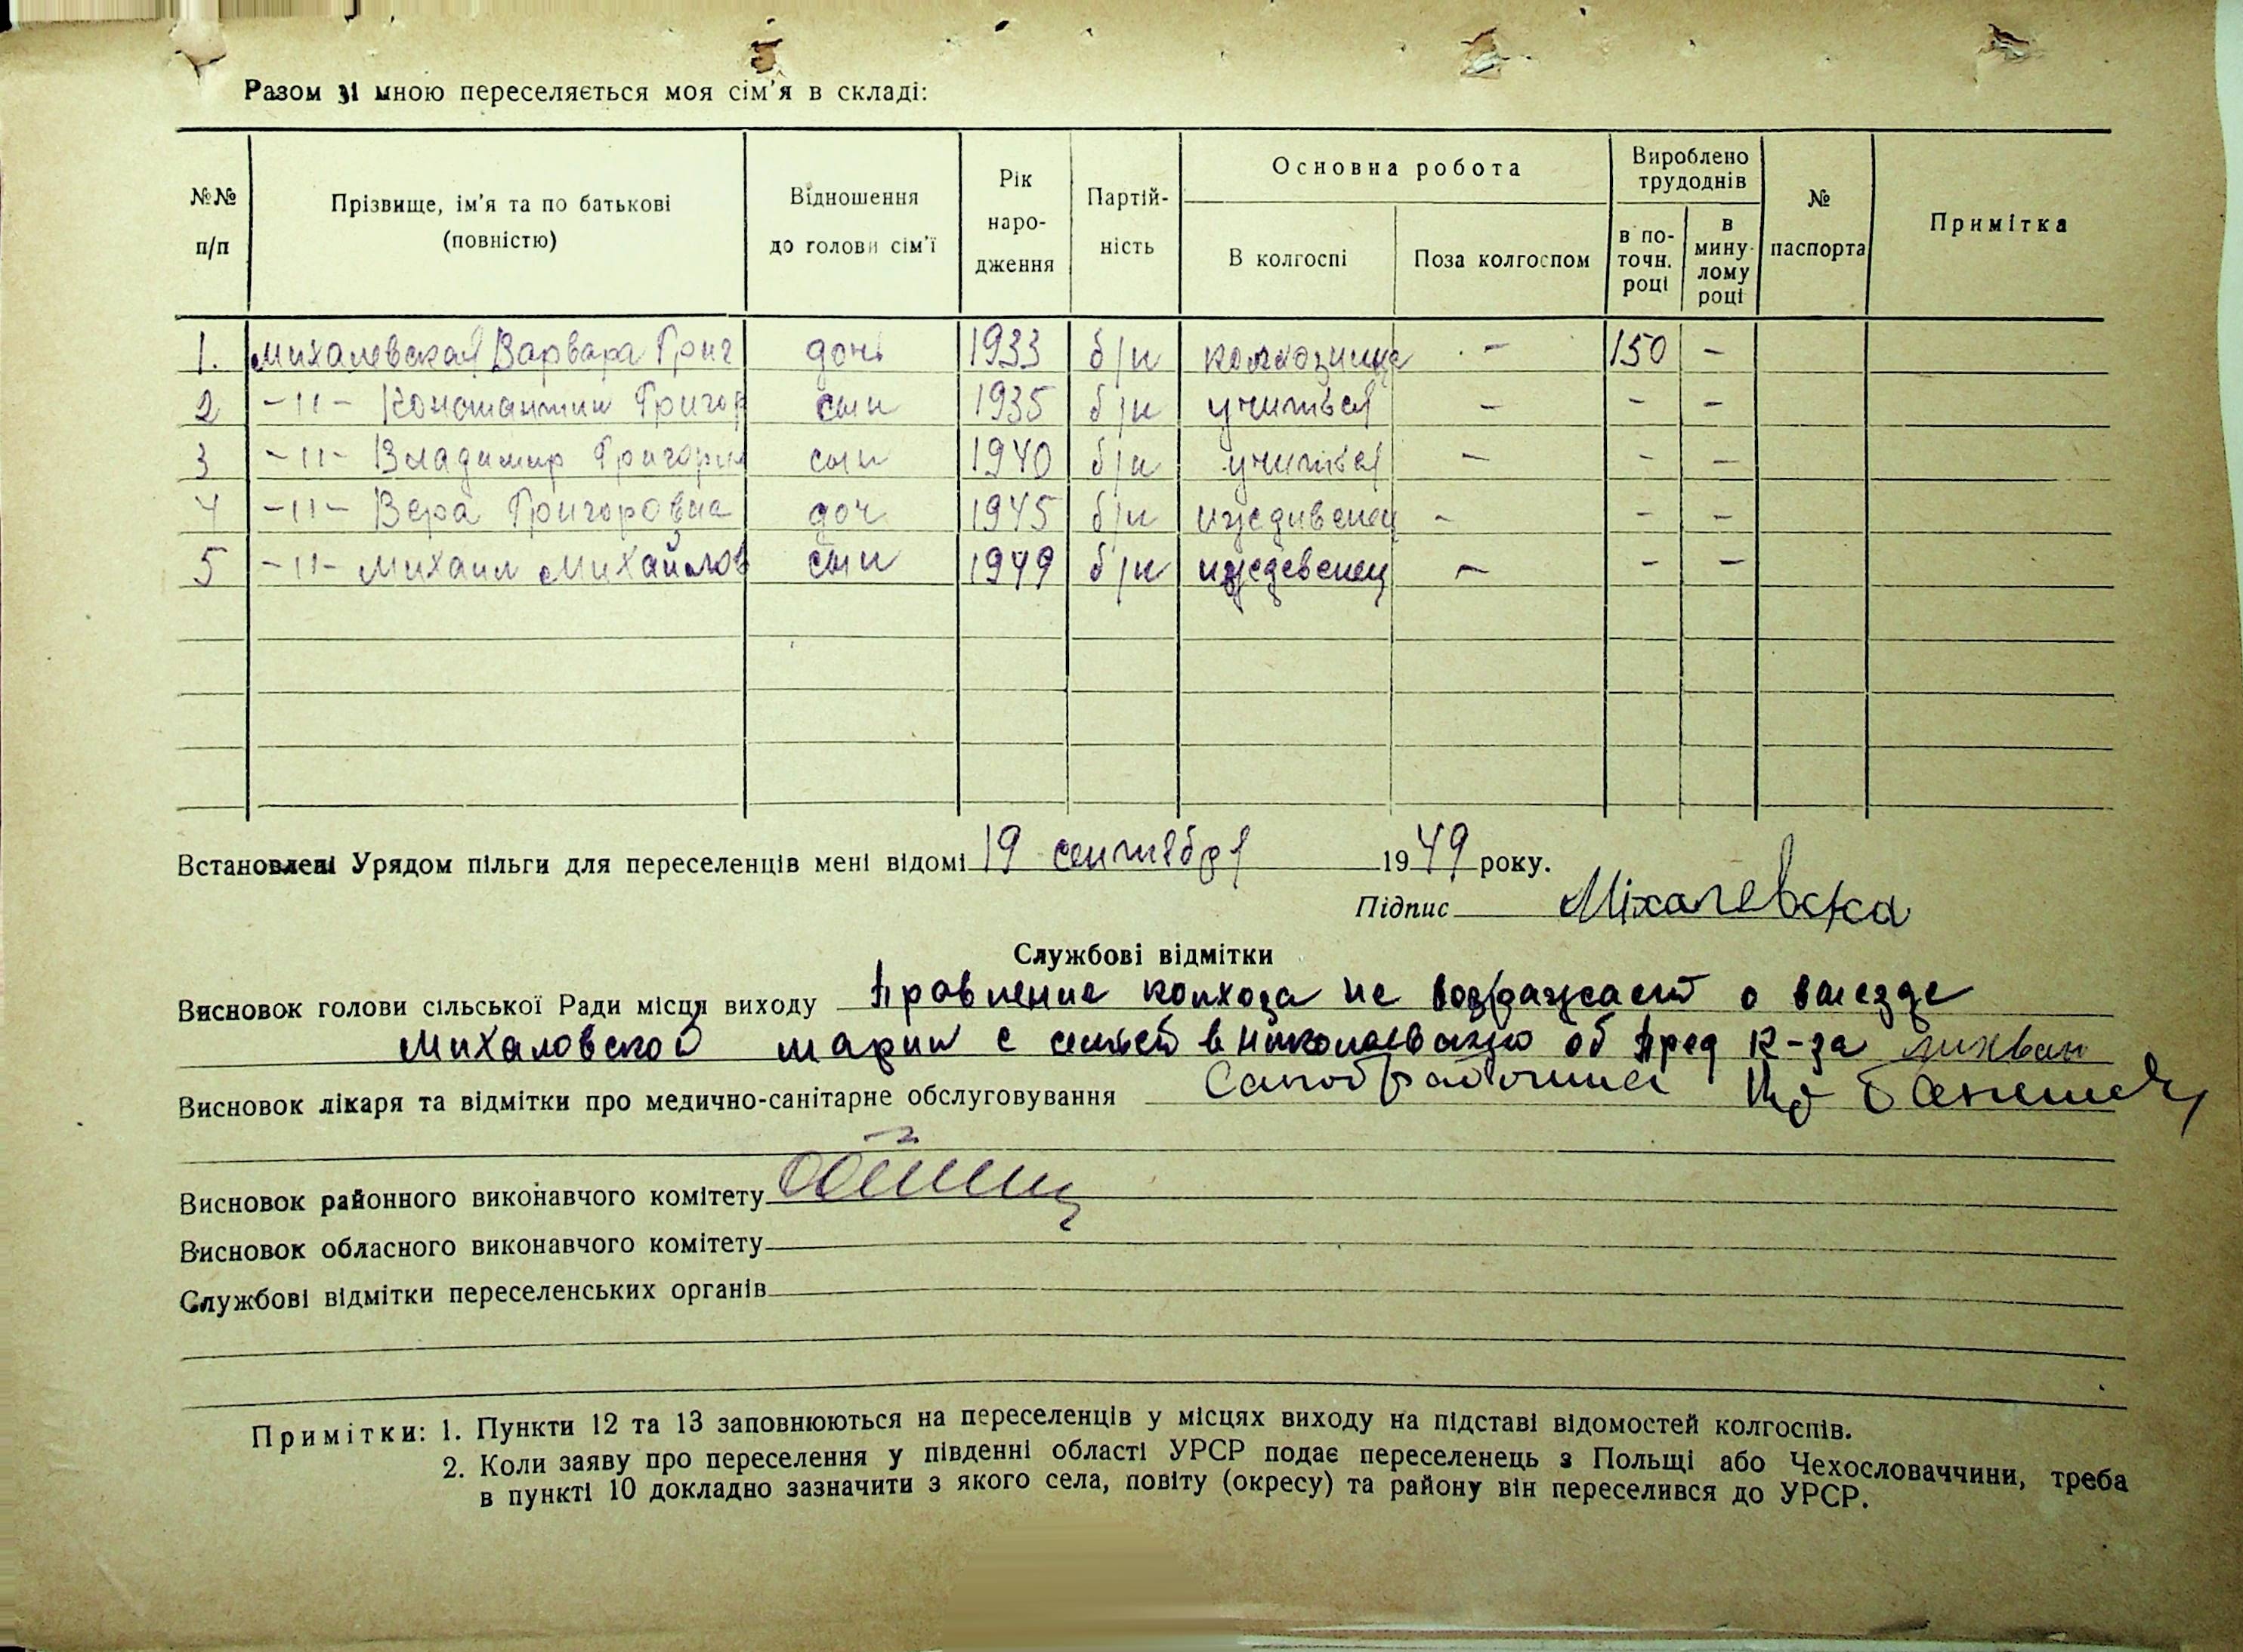 Разом зі мною переселяється моя сім'я в складі:
№№ п/п
Прізвище, ім'я та по батькові (повністю)
Відношення до голови сім'ї
Рік наро-дження
Партій-ність
Основна робота
В колгоспі
Поза колгоспом
Вироблено трудоднів
в по-точн. році
в мину-лому році
№ паспорта
Примітка
1. Михалевская Варвара Григ доч 1933 б/п колхозница - 150 -
2 -"- Константин Григор сын 1935 б/п учиться - - -
3 -"- Владимир Григори сын 1940 б/п учиться - - -
4 -"- Вера Григоровна доч 1945 б/п иждивенец - - -
5 -"- Михаил Михайлов сын 1949 б/п иждевенец - - -
Встановлені Урядом пільги для переселенців мені відомі 19 сентября 1949 року.
Підпис Міхалевска
Службові відмітки
Висновок голови сільської Ради місця виходу Правление колхоза не возражает о выезде
Михаловской Марии с семьей в николаевскую об Пред к-за
Висновок лікаря та відмітки про медично-санітарне обслуговування Санобработана
Висновок районного виконавчого комітету
Висновок обласного виконавчого комітету
Службові відмітки переселенських органів
Примітки: 1. Пункти 12 та 13 заповнюються на переселенців у місцях виходу на підставі відомостей колгоспів.
2. Коли заяву про переселення у південні області УРСР подає переселенець з Польщі або Чехословаччини, треба
в пункті 10 докладно зазначити з якого села, повіту (окресу) та району він переселився до УРСР.